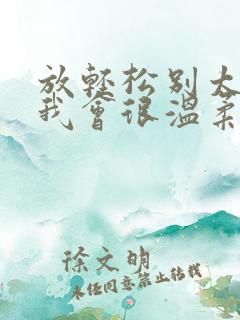 放轻松别太
我会很温柔
徐文明
未经同意禁止转载